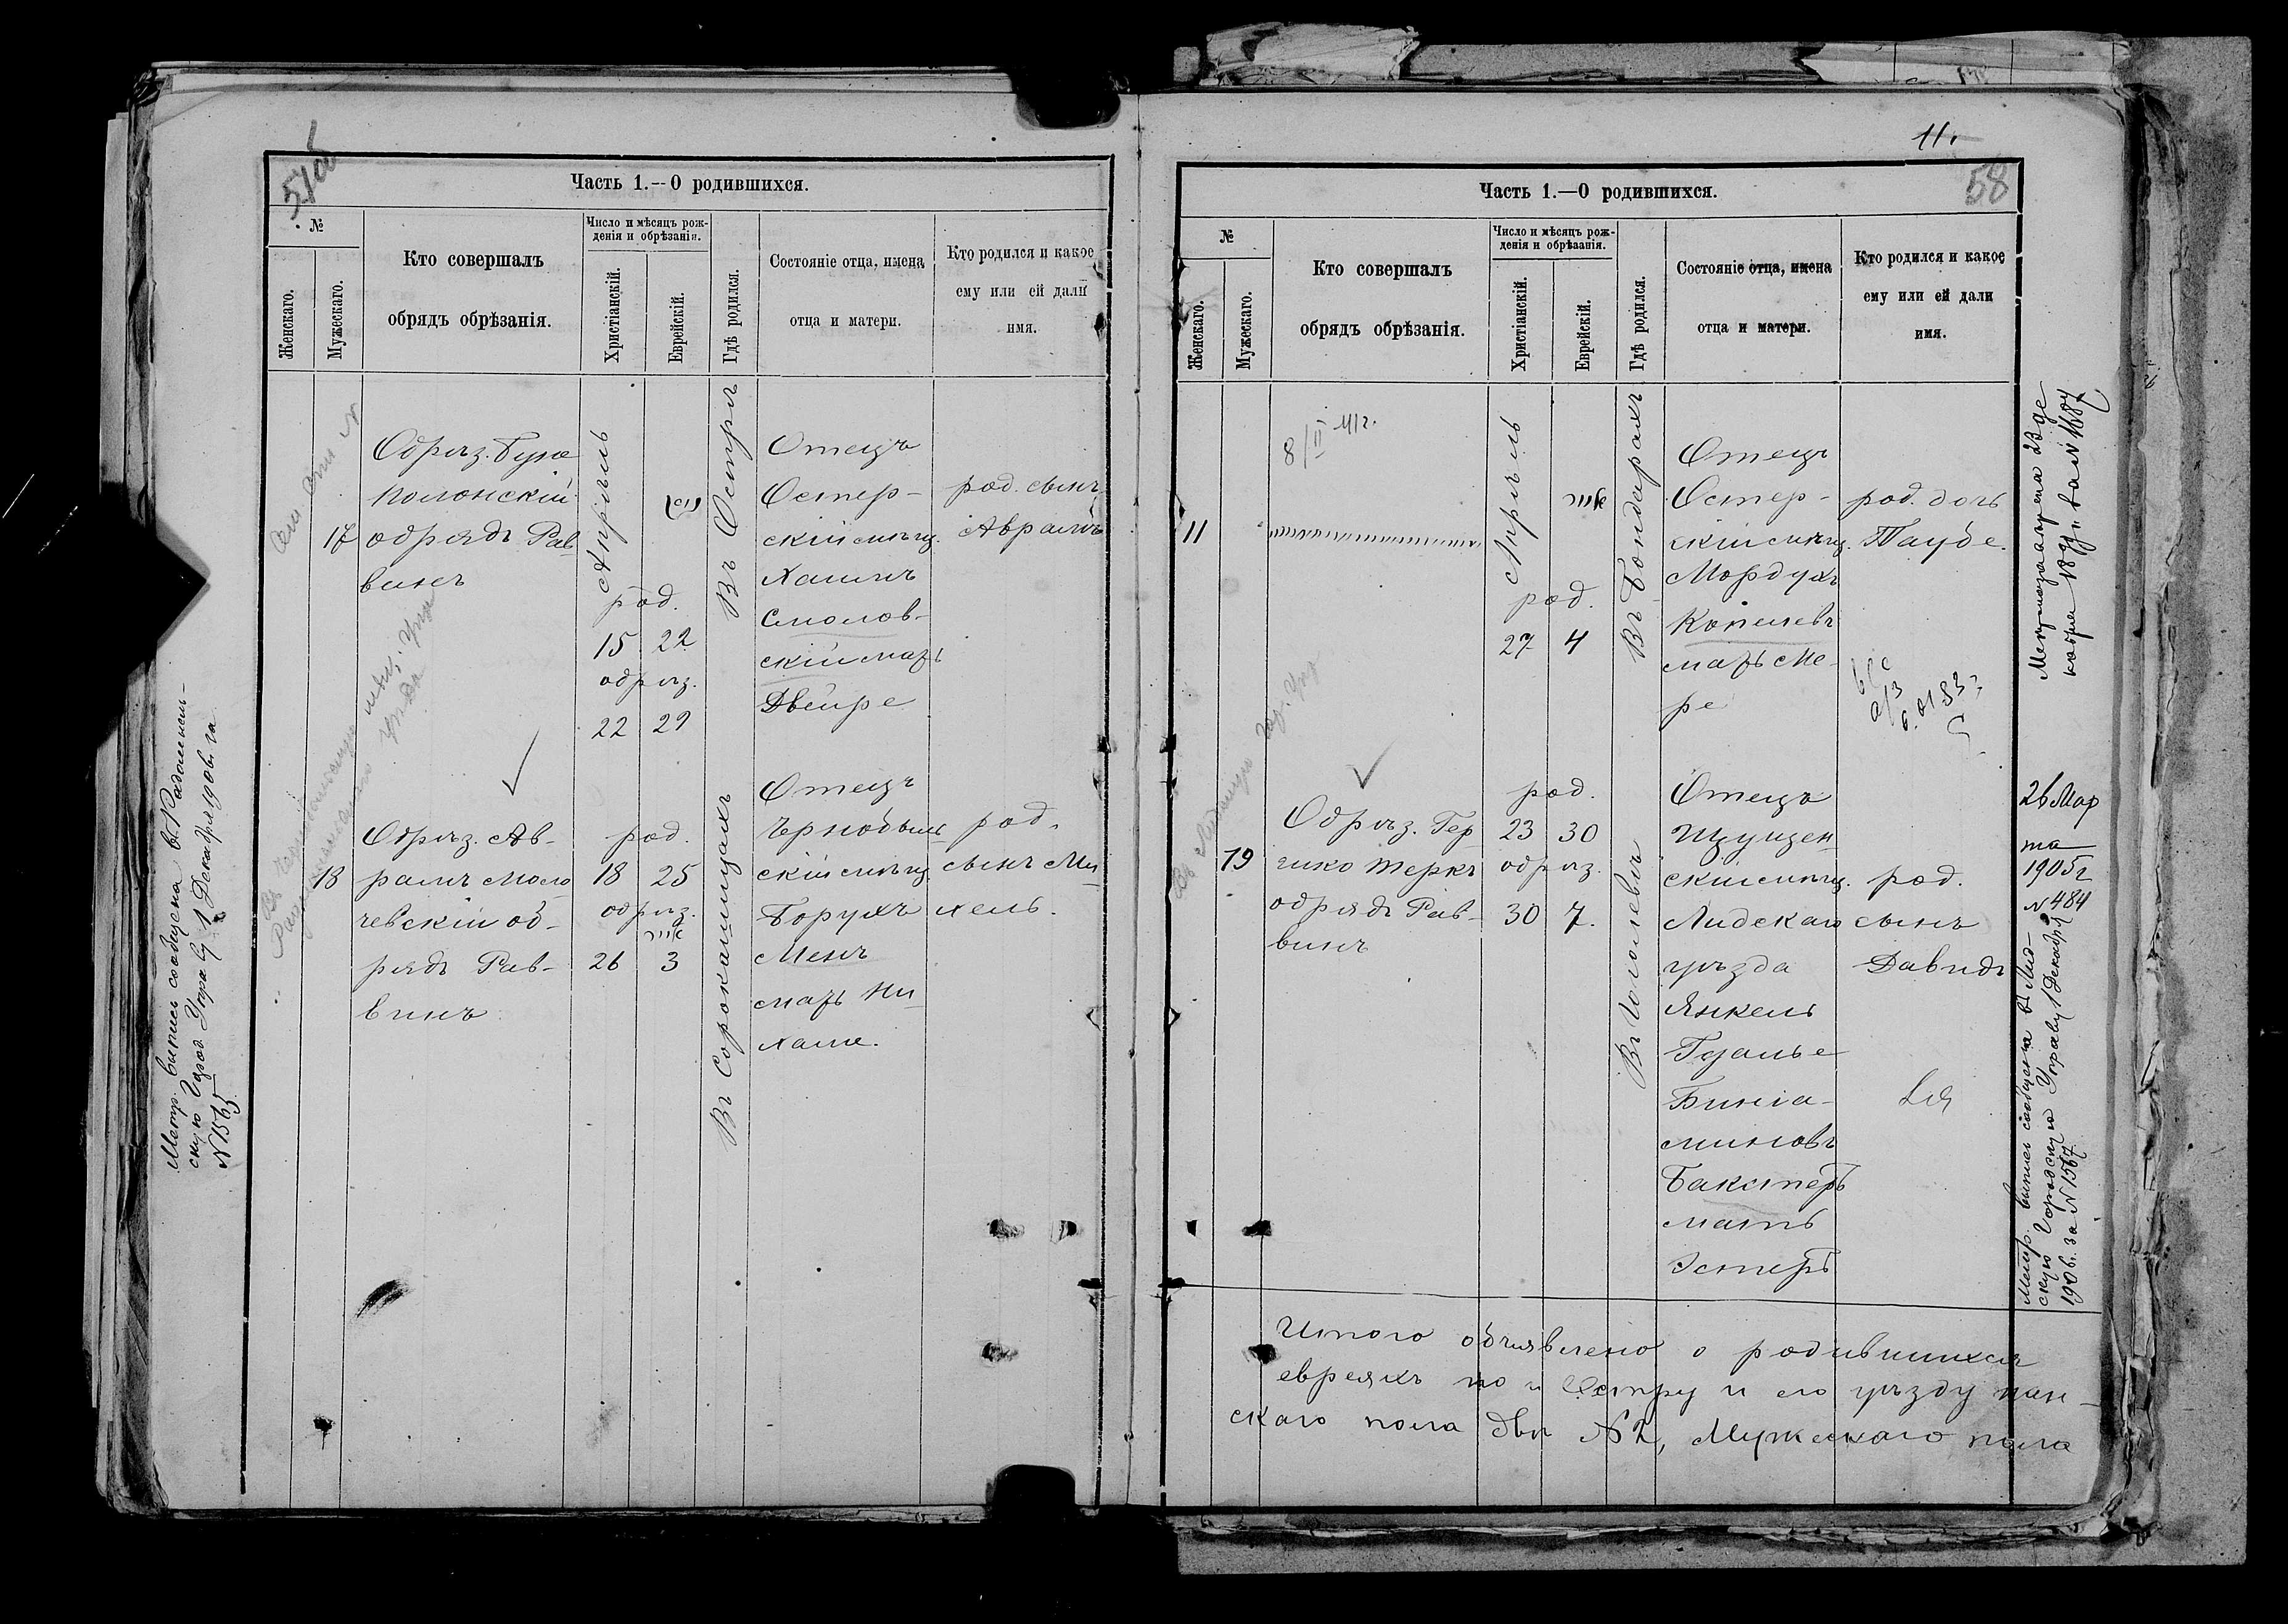 57об
Часть 1.—О родившихся.
№
Женскаго.
Мужескаго.
Кто совершалъ
обрядъ обрѣзанія.
Число и мѣсяцъ рож-
денія и обрѣзанія.
Христіанскій.
Еврейскій.
Гдѣ родился.
Состояніе отца, имена
отца и матери.
Кто родился и какое
ему или ей дали
имя.
17
Обрѣз.
полонскій
обрядъ Рав-
винъ
Апрѣль
род.
15 22
обрѣз.
22 29
Въ Острѣ
Отецъ
Остер-
скій мѣщ.
Хаимъ
Смолов-
скій мать
Двейре
род. сынъ
Аврамъ
18
Обрѣз. Ав-
рамъ Моло
чевскій об-
рядъ Рав-
винъ
род.
18 25
обрѣз.
26 3
Въ Сорокашицахъ
Отецъ
Чернобыль
скій мѣщ.
Борухъ
Менъ
мать Ни
хаме.
род.
сынъ Ми
хель.
Метр. выпись сообщена въ Радомысль-
скую Город Управу 1 Декабря 1906 г за
N 1565
11.
58
Часть 1.—О родившихся.
№
Женскаго.
Мужескаго.
Кто совершалъ
обрядъ обрѣзанія.
Число и мѣсяцъ рож-
денія и обрѣзанія.
Христіанскій.
Еврейскій.
Гдѣ родился.
Состояніе отца, имена
отца и матери.
Кто родился и какое
ему или ей дали
имя.
11
8/II 41г.
Апрѣль
род.
27 4
Въ Бондаряхъ
Отецъ
Остер-
скій мѣщ.
Мордухъ
Копилевъ
мать Ме-
ре
род. дочь
Таубе.
19
Обрѣз. Гер
шко Теркъ
обрядъ Рав-
винъ
род.
23 30
обрѣз.
30 7.
Отецъ
Щучен
скій мѣщ.
Лидскаго
уѣзда
Янкель
Гдалье
Бинia-
миновъ
Бакштеръ
мать
Эстеръ
род.
сынъ
Давидъ
26 Мар
та
1905 г
N 484
Метр. выпись сообщена въ Лид-
скую Городскую Управу 1 Декабря
1906. за N 1567
Итого объявлено о родившихся
евреяхъ по г Остру и его уѣзду жен-
скаго пола двѣ №2, Мужескаго пола